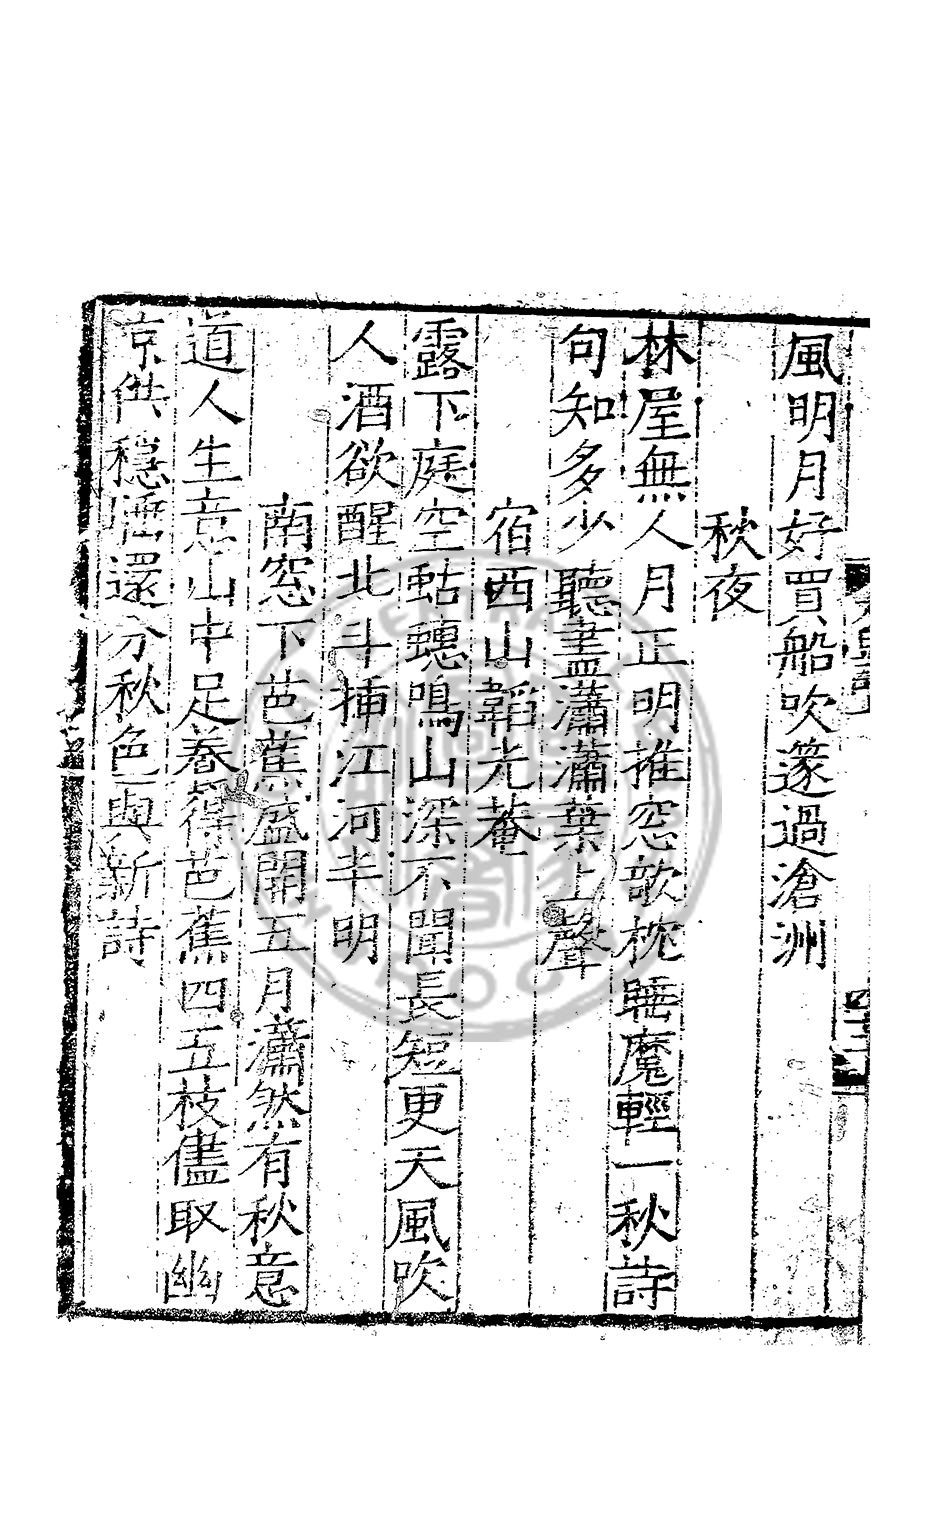 風明月好買船吹篴過滄洲
秋夜
林屋無人月正明推窓欹枕睡魔輕一秋詩
句知多少聽盡瀟瀟葉上聲
宿西山韜光菴
露下庭空蛄蟪鳴山深不聞長短更天風吹
人酒欲醒北斗挿江河半明
南窓下芭蕉盛開五月瀟然有秋意
道人生意山中足養得芭蕉四五枝儘取幽
凉供穩睡還分秋色與新詩